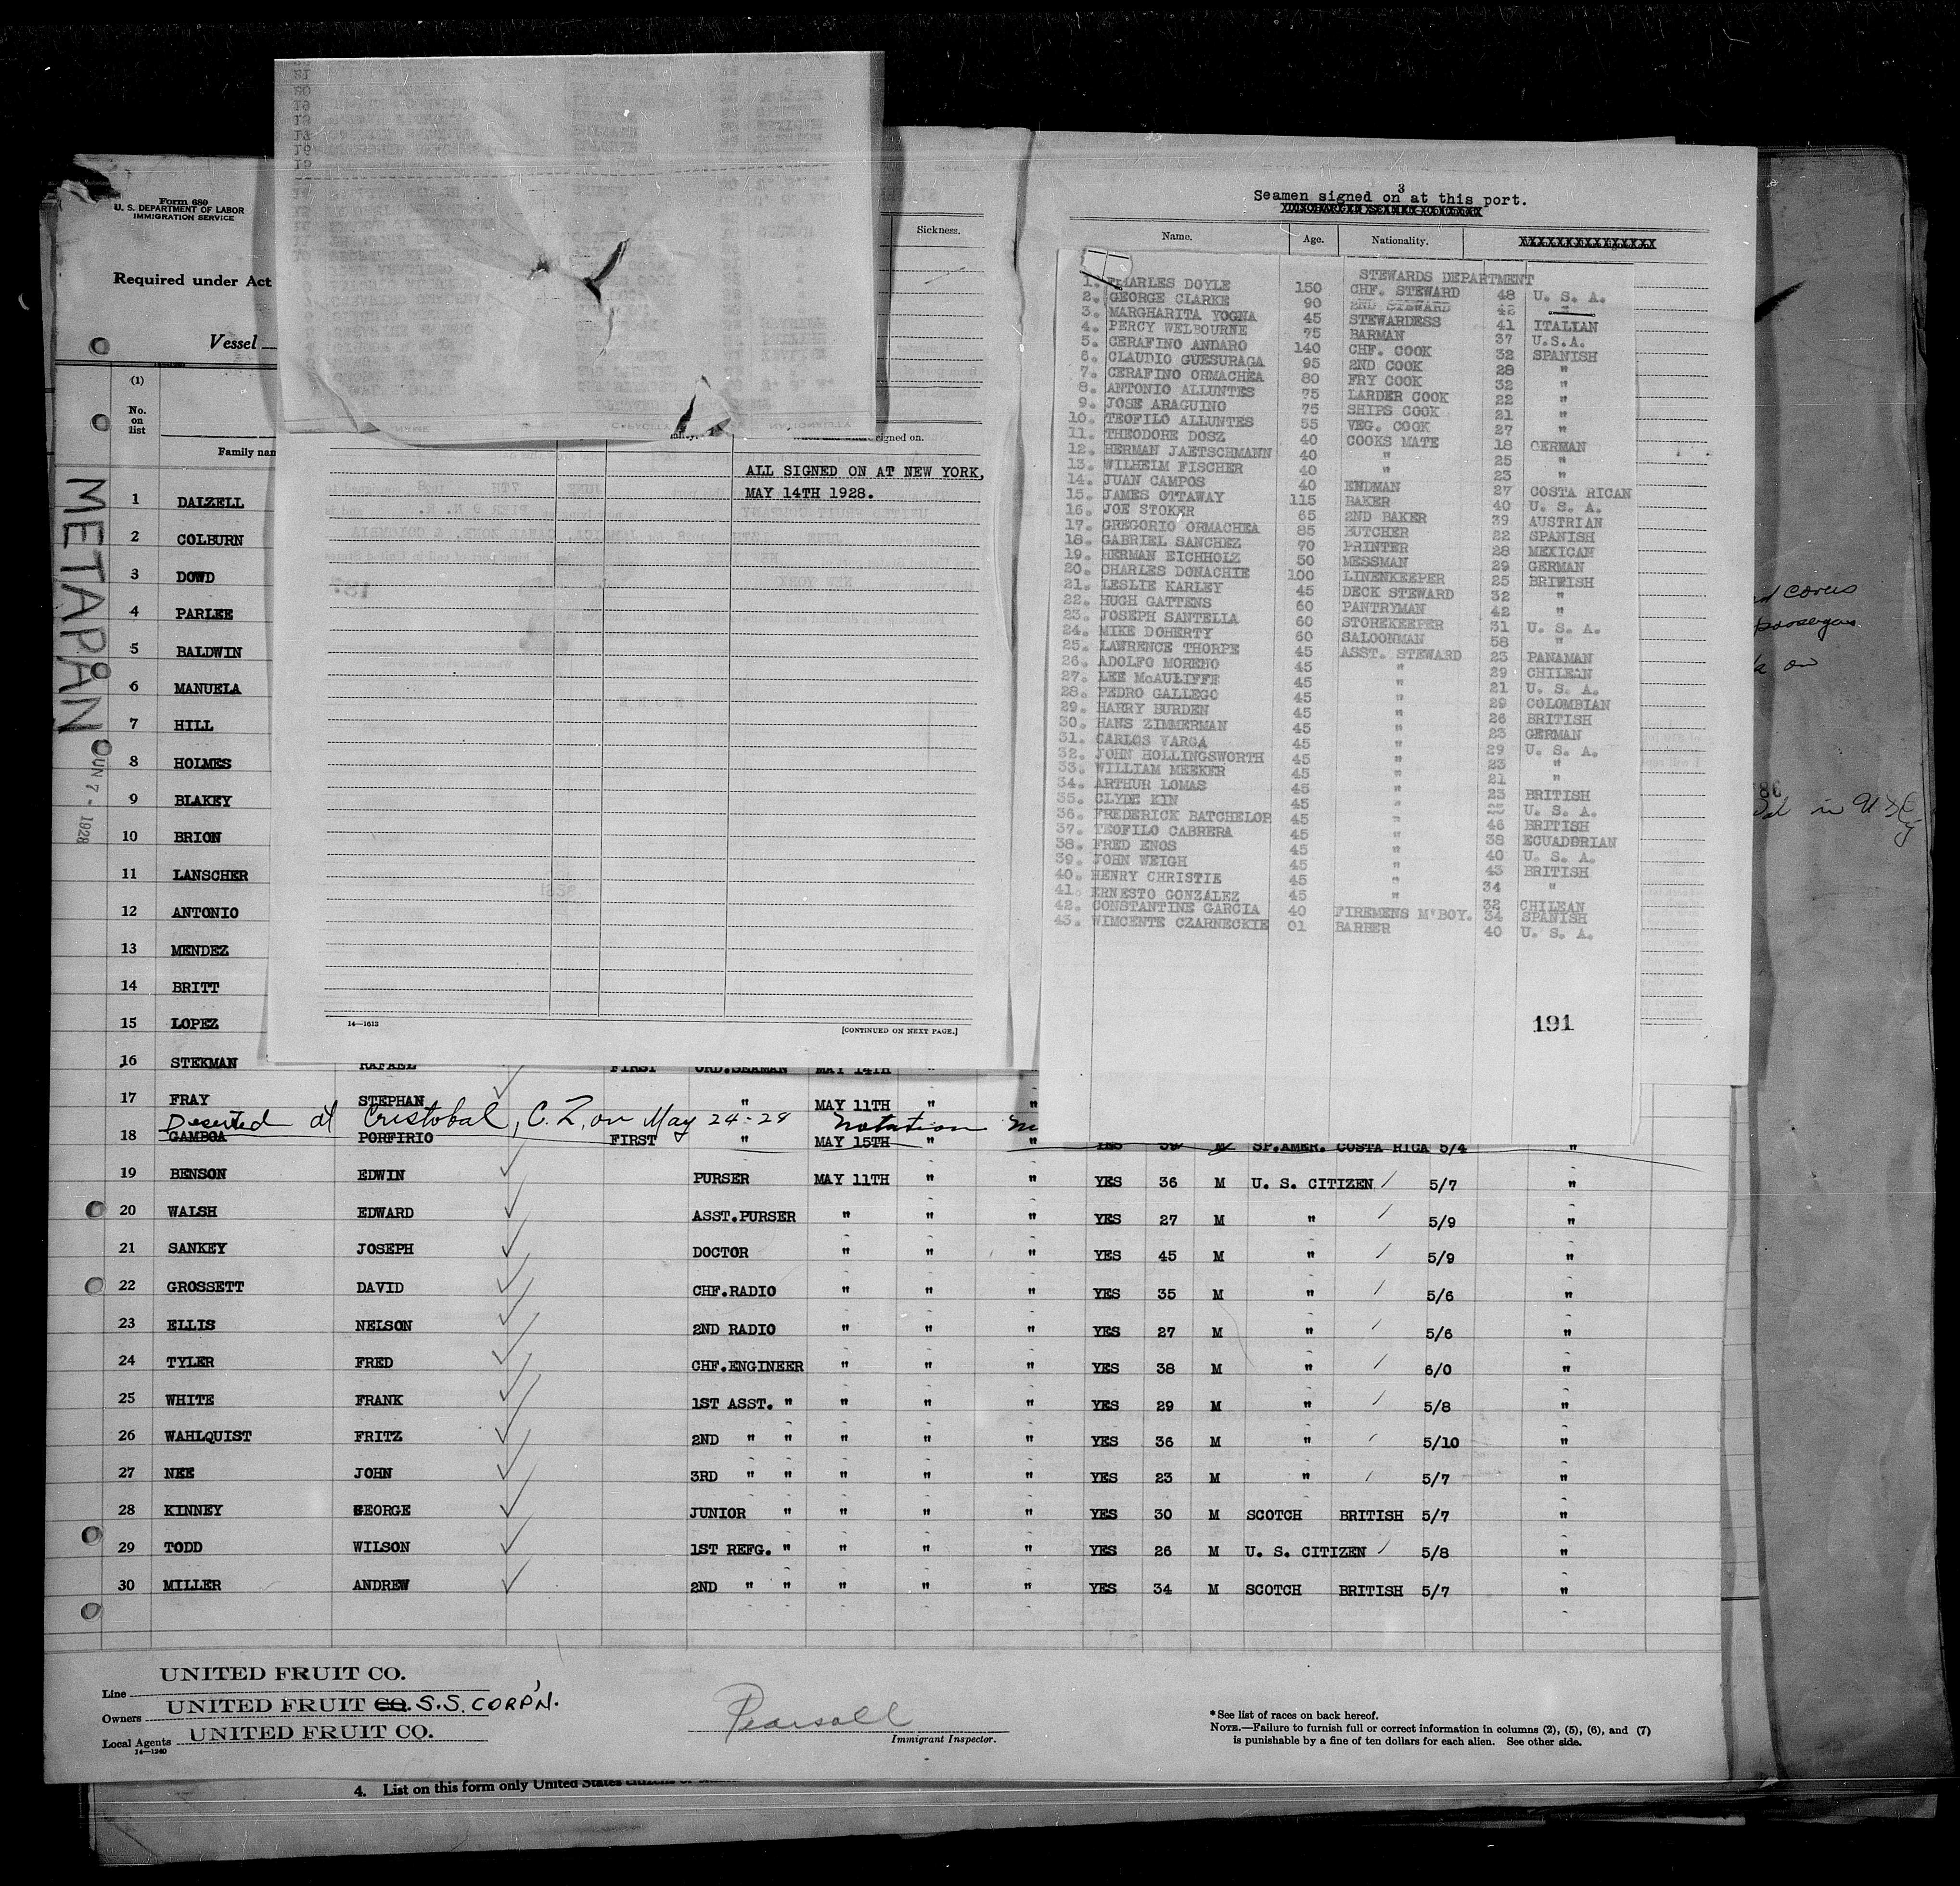 Form 680
U. S. DEPARTMENT OF LABOR
IMMIGRATION SERVICE
Required under Act
Vessel
(1)
No.
on
list
Family nam
METAPAN
JUN 7 - 1928
1 DALZELL
2 COLBURN
3 DOWD
4 PARLEE
5 BALDWIN
6 MANUELA
7 HILL
8 HOLMES
9 BLAKEY
10 BRION
11 LANSCHER
12 ANTONIO
13 MENDEZ
14 BRITT
15 LOPEZ
Sickness.
signed on.
ALL SIGNED ON AT NEW YORK,
MAY 14TH 1928.
14—1613
[CONTINUED ON NEXT PAGE.]
3
Seamen signed on at this port.
Name. Age. Nationality. XXXXXXXXXXXXXXX
STEWARDS DEPARTMENT
1. CHARLES DOYLE 150 CHF. STEWARD 48 U. S. A.
2. GEORGE CLARKE 90 2ND STEWARD 42 "
3. MARGHARITA YOGNA 45 STEWARDESS 41 ITALIAN
4. PERCY WELBOURNE 75 BARMAN 37 U.S.A.
5. CERAFINO ANDARO 140 CHF. COOK 32 SPANISH
6. CLAUDIO GUESURAGA 95 2ND COOK 28 "
7. CERAFINO ORMACHEA 80 FRY COOK 32 "
8. ANTONIO ALLUNTES 75 LARDER COOK 22 "
9. JOSE ARAGUINO 75 SHIPS COOK 21 "
10. TEOFILO ALLUNTES 55 VEG. COOK 27 "
11. THEODORE DOSZ 40 COOKS MATE 18 GERMAN
12. HERMAN JAETSCHMANN 40 " 25 "
13. WILHEIM FISCHER 40 " 23 "
14. JUAN CAMPOS 40 ENDMAN 27 COSTA RICAN
15. JAMES OTTAWAY 115 BAKER 40 U. S. A.
16. JOE STOKER 65 2ND BAKER 39 AUSTRIAN
17. GREGORIO ORMACHEA 85 BUTCHER 22 SPANISH
18. GABRIEL SANCHEZ 70 PRINTER 28 MEXICAN
19. HERMAN EICHHOLZ 50 MESSMAN 29 GERMAN
20. CHARLES DONACHIE 100 LINENKEEPER 25 BRITISH
21. LESLIE KARLEY 45 DECK STEWARD 32 "
22. HUGH GATTENS 60 PANTRYMAN 42 "
23. JOSEPH SANTELLA 60 STOREKEEPER 31 U. S. A.
24. MIKE DOHERTY 60 SALOONMAN 58 "
25. LAWRENCE THORPE 45 ASST. STEWARD 23 PANAMAN
26. ADOLFO MORENO 45 " 29 CHILEAN
27. LEE McAULIFFE 45 " 21 U. S. A.
28. PEDRO GALLEGO 45 " 29 COLOMBIAN
29. HARRY BURDEN 45 " 26 BRITISH
30. HANS ZIMMERMAN 45 " 23 GERMAN
31. CARLOS VARGA 45 " 29 U. S. A.
32. JOHN HOLLINGSWORTH 45 " 23 "
33. WILLIAM MEEKER 45 " 21 "
34. ARTHUR LOMAS 45 " 23 BRITISH
35. CLYDE KIN 45 " 25 U. S. A.
36. FREDERICK BATCHELOR 45 " 46 BRITISH
37. TEOFILO CABRERA 45 " 38 ECUADORIAN
38. FRED ENOS 45 " 40 U. S. A.
39. JOHN WEIGH 45 " 43 BRITISH
40. HENRY CHRISTIE 45 " 34 "
41. ERNESTO GONZALEZ 45 " 32 CHILEAN
42. CONSTANTINE GARCIA 40 FIREMENS M'BOY. 34 SPANISH
43. WIMCENTE CZARNECKIE 01 BARBER 40 U. S. A.
191
covers
passengers
on
in
16 STEKMAN RAFAEL FIRST ORD.SEAMAN MAY 14TH "
17 FRAY STEPHAN " MAY 11TH " "
Deserted at Cristobal, C. Z, on May 24-28 Notation
18 GAMBOA PORFIRIO FIRST " MAY 15TH " " YES 39 M SP.AMER. COSTA RICA 5/4 "
19 BENSON EDWIN PURSER MAY 11TH " " YES 36 M U. S. CITIZEN 5/7 "
20 WALSH EDWARD ASST.PURSER " " " YES 27 M " 5/9 "
21 SANKEY JOSEPH DOCTOR " " " YES 45 M " 5/9 "
22 GROSSETT DAVID CHF.RADIO " " " YES 35 M " 5/6 "
23 ELLIS NELSON 2ND RADIO " " " YES 27 M " 5/6 "
24 TYLER FRED CHF.ENGINEER " " " YES 38 M " 6/0 "
25 WHITE FRANK 1ST ASST. " " " " YES 29 M " 5/8 "
26 WAHLQUIST FRITZ 2ND " " " " " YES 36 M " 5/10 "
27 NEE JOHN 3RD " " " " " YES 23 M " 5/7 "
28 KINNEY GEORGE JUNIOR " " " " YES 30 M SCOTCH BRITISH 5/7 "
29 TODD WILSON 1ST REFG. " " " " YES 26 M U. S. CITIZEN 5/8 "
30 MILLER ANDREW 2ND " " " " " YES 34 M SCOTCH BRITISH 5/7 "
Line UNITED FRUIT CO.
Owners UNITED FRUIT CO. S.S. CORP'N.
Local Agents UNITED FRUIT CO.
14—1240
Pearsall
Immigrant Inspector.
*See list of races on back hereof.
NOTE.—Failure to furnish full or correct information in columns (2), (5), (6), and (7)
is punishable by a fine of ten dollars for each alien. See other side.
4. List on this form only United States citizens